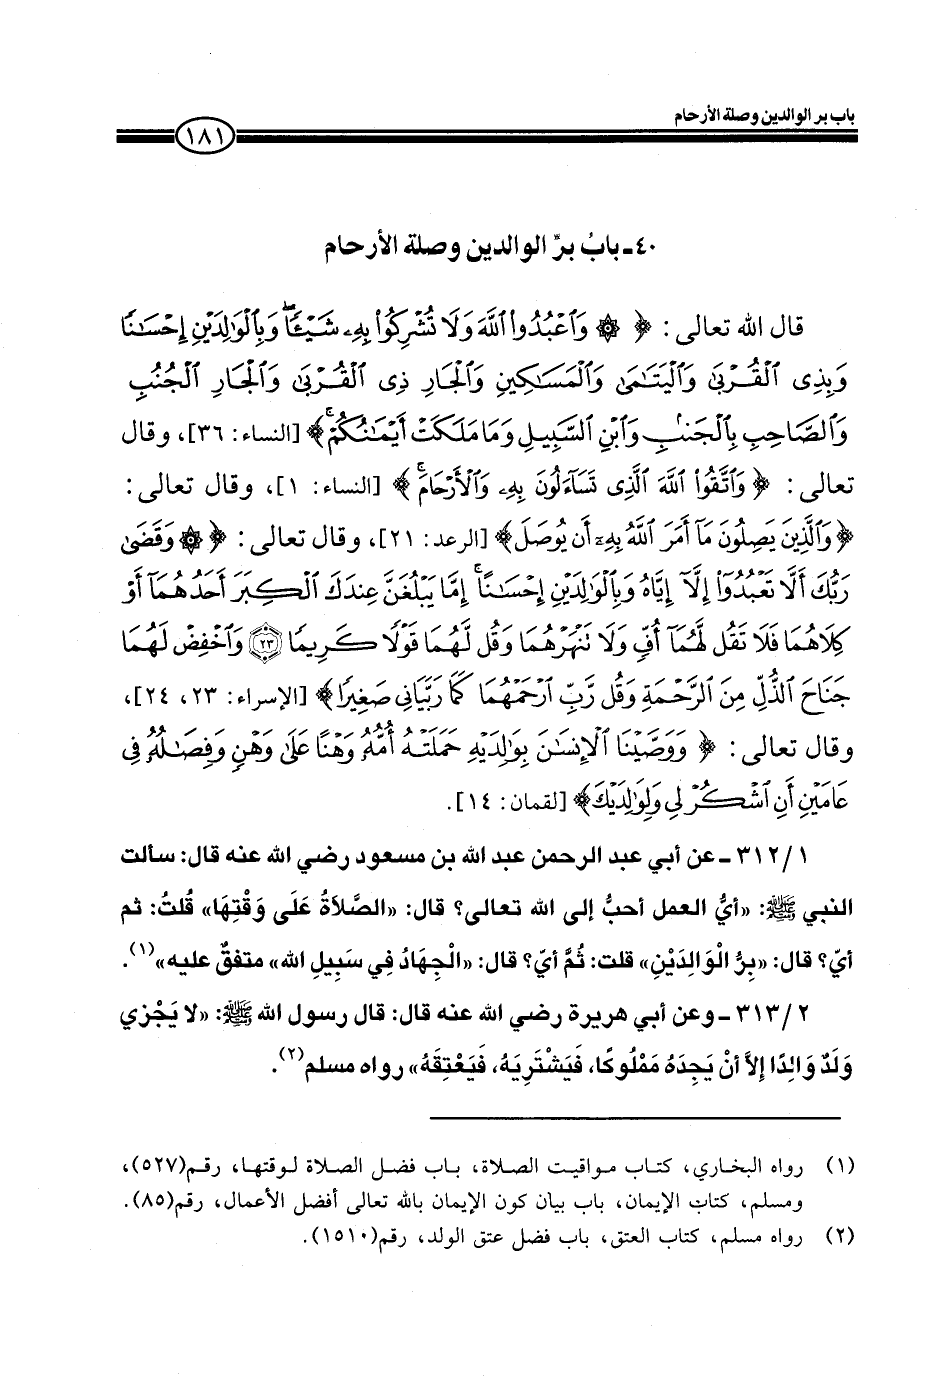 باب بر الوالدين وصلة الأرحام
١٨١
٤٠ـ بابُ برِّ الوالدين وصلة الأرحام
قال الله تعالى: ﴿ ۞ وَٱعْبُدُوا۟ ٱللَّهَ وَلَا تُشْرِكُوا۟ بِهِۦ شَيْـًٔا ۖ وَبِٱلْوَٰلِدَيْنِ إِحْسَـٰنًا
وَبِذِى ٱلْقُرْبَىٰ وَٱلْيَتَـٰمَىٰ وَٱلْمَسَـٰكِينِ وَٱلْجَارِ ذِى ٱلْقُرْبَىٰ وَٱلْجَارِ ٱلْجُنُبِ
وَٱلصَّاحِبِ بِٱلْجَنۢبِ وَٱبْنِ ٱلسَّبِيلِ وَمَا مَلَكَتْ أَيْمَـٰنُكُمْ ۗ﴾ [النساء: ٣٦]، وقال
تعالى: ﴿ وَٱتَّقُوا۟ ٱللَّهَ ٱلَّذِى تَسَآءَلُونَ بِهِۦ وَٱلْأَرْحَامَ ۚ﴾ [النساء: ١]، وقال تعالى:
﴿وَٱلَّذِينَ يَصِلُونَ مَآ أَمَرَ ٱللَّهُ بِهِۦٓ أَن يُوصَلَ﴾ [الرعد: ٢١]، وقال تعالى: ﴿ ۞ وَقَضَىٰ
رَبُّكَ أَلَّا تَعْبُدُوٓا۟ إِلَّآ إِيَّاهُ وَبِٱلْوَٰلِدَيْنِ إِحْسَـٰنًا ۚ إِمَّا يَبْلُغَنَّ عِندَكَ ٱلْكِبَرَ أَحَدُهُمَآ أَوْ
كِلَاهُمَا فَلَا تَقُل لَّهُمَآ أُفٍّ وَلَا تَنْهَرْهُمَا وَقُل لَّهُمَا قَوْلًا كَرِيمًا ٢٣ وَٱخْفِضْ لَهُمَا
جَنَاحَ ٱلذُّلِّ مِنَ ٱلرَّحْمَةِ وَقُل رَّبِّ ٱرْحَمْهُمَا كَمَا رَبَّيَانِى صَغِيرًا﴾ [الإسراء: ٢٣، ٢٤]،
وقال تعالى: ﴿ وَوَصَّيْنَا ٱلْإِنسَـٰنَ بِوَٰلِدَيْهِ حَمَلَتْهُ أُمُّهُۥ وَهْنًا عَلَىٰ وَهْنٍ وَفِصَـٰلُهُۥ فِى
عَامَيْنِ أَنِ ٱشْكُرْ لِى وَلِوَٰلِدَيْكَ﴾ [لقمان: ١٤].
٣١٢/١ ـ عن أبي عبد الرحمن عبد الله بن مسعود رضي الله عنه قال: سألت
النبي ﷺ: «أيُّ العمل أحبُّ إلى الله تعالى؟ قال: «الصَّلاَةُ عَلَى وَقْتِهَا» قُلتُ: ثم
أيّ؟ قال: «بِرُّ الْوَالِدَيْنِ» قلت: ثُمَّ أيّ؟ قال: «الْجِهَادُ فِي سَبِيلِ الله» متفقٌ عليه»(١).
٣١٣/٢ ـ وعن أبي هريرة رضي الله عنه قال: قال رسول الله ﷺ: «لا يَجْزي
وَلَدٌ وَالِدًا إلاَّ أنْ يَجِدَهُ مَمْلُوكًا، فَيَشْتَرِيَهُ، فَيَعْتِقَهُ» رواه مسلم(٢).
(١) رواه البخاري، كتاب مواقيت الصلاة، باب فضل الصلاة لوقتها، رقم(٥٢٧)،
ومسلم، كتاب الإيمان، باب بيان كون الإيمان بالله تعالى أفضل الأعمال، رقم(٨٥).
(٢) رواه مسلم، كتاب العتق، باب فضل عتق الولد، رقم(١٥١٠).